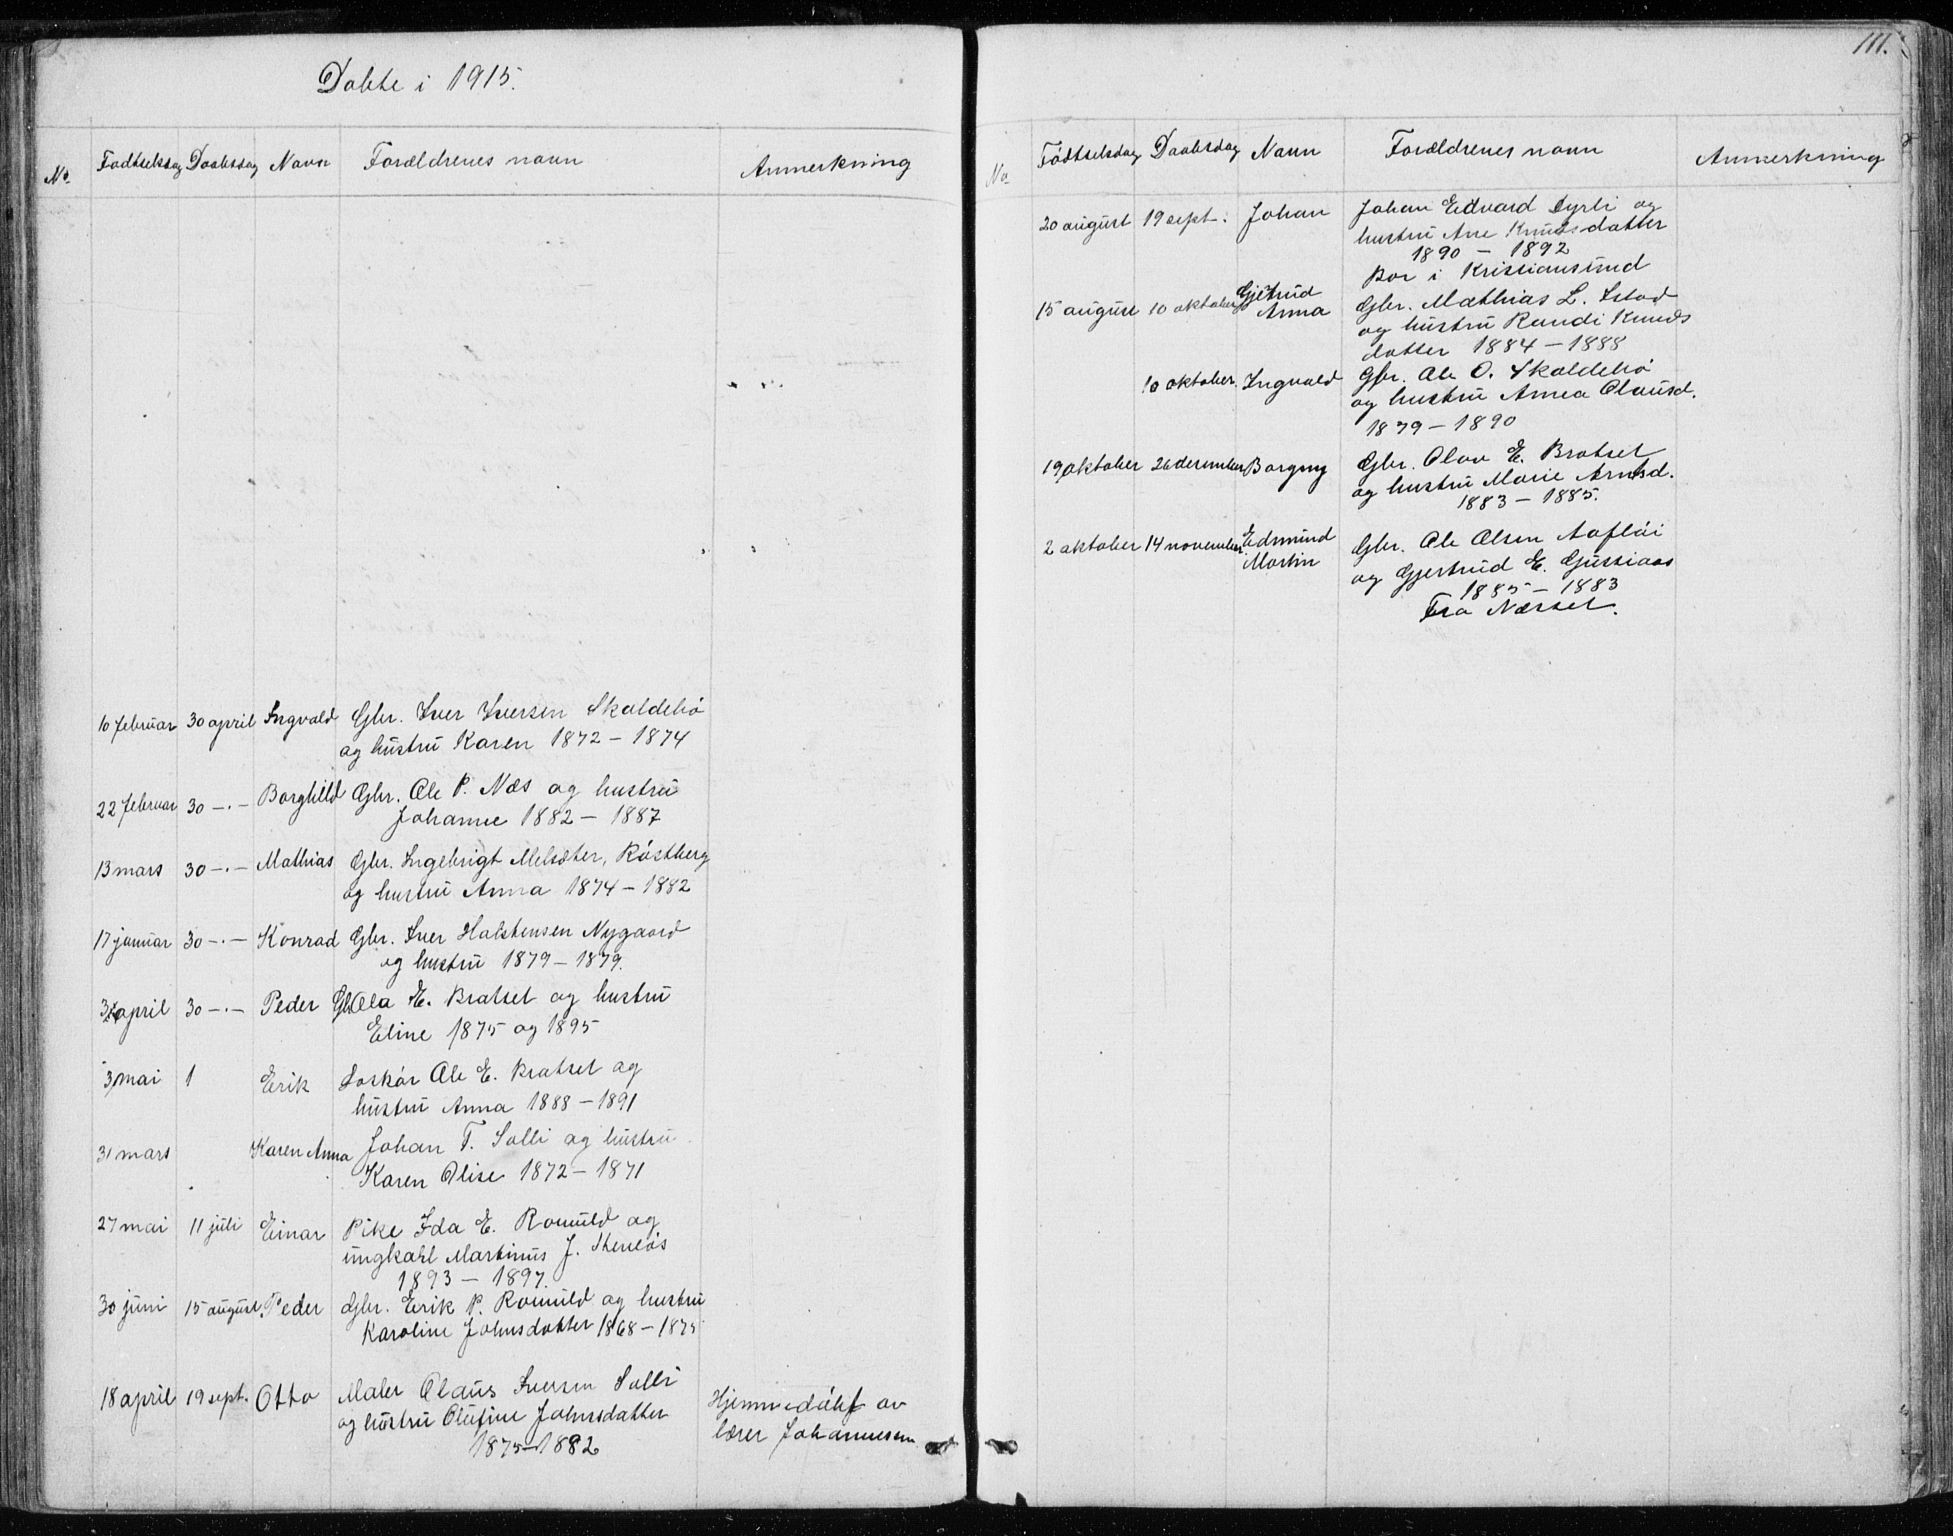 Døbte i 1915.
No. Fødtselsdag Daabsdag Navn Forældrenes navn Anmerkning
10 februar 30 april Ingvald Gbr. Iver Iversen Skaldehø
og hustru Karen 1872 – 1874
22 februar 30 –·– Borghild Gbr. Ole P. Næs og hustru
Johanne 1882 – 1887
13 mars 30 –·– Mathias Gbr. Ingebrigt Melsæter, Røstberg
og hustru Anna 1874 – 1882
17 januar 30 –·– Konrad Gbr. Iver Halstensen Nygaard
og hustru 1879 – 1879.
april 30 –·– Peder Gbr Ola E. Bratset og hustru
Eline 1875 og 1895
3 mai 1 Erik Ole E. Bratset og
hustru Anna 1888 – 1891
31 mars Karen Anna Johan T. Solli og hustru
Karen Olise 1872 – 1871
27 mai 11 juli Einar Pike Ida E. Romuld og
ungkarl Martinus J.
1893 – 1897.
30 juni 15 august Peder Gbr. Erik P. Romuld og hustru
Karoline Johnsdatter 1868 – 1875
18 april 19 sept. Otto Maler Olaus Iversen Solli
og hustru Olufine Johnsdatter
1875 – 1882
Hjemmedøbt av
lærer Johannesen
111.
No Fødtselsdag Daabsdag Navn Forældrenes navn Anmerkning
20 august 19 sept. Johan Johan Edvard Dyrli og
hustru Ane Knudsdatter
1890 – 1892
Bor i Kristiansund
15 august 10 oktober Gjetrud
Anna Gbr. Mathias L. Istad
og hustru Randi Knuds
datter 1884 – 1888
10 oktober. Ingvald Gbr. Ole O. Skaldehø
og hustru Annea Olausd.
1879 – 1890
19 oktober 26 desember Borgny Gbr. Olav E. Bratset
og hustru Marie Arntsd.
1883 – 1885.
2 oktober 14 november Edmund
Martin Gbr. Ole Olsen Aafløi
og Gjertrud E. Gussiaas
1885 – 1883
Fra Nesset.